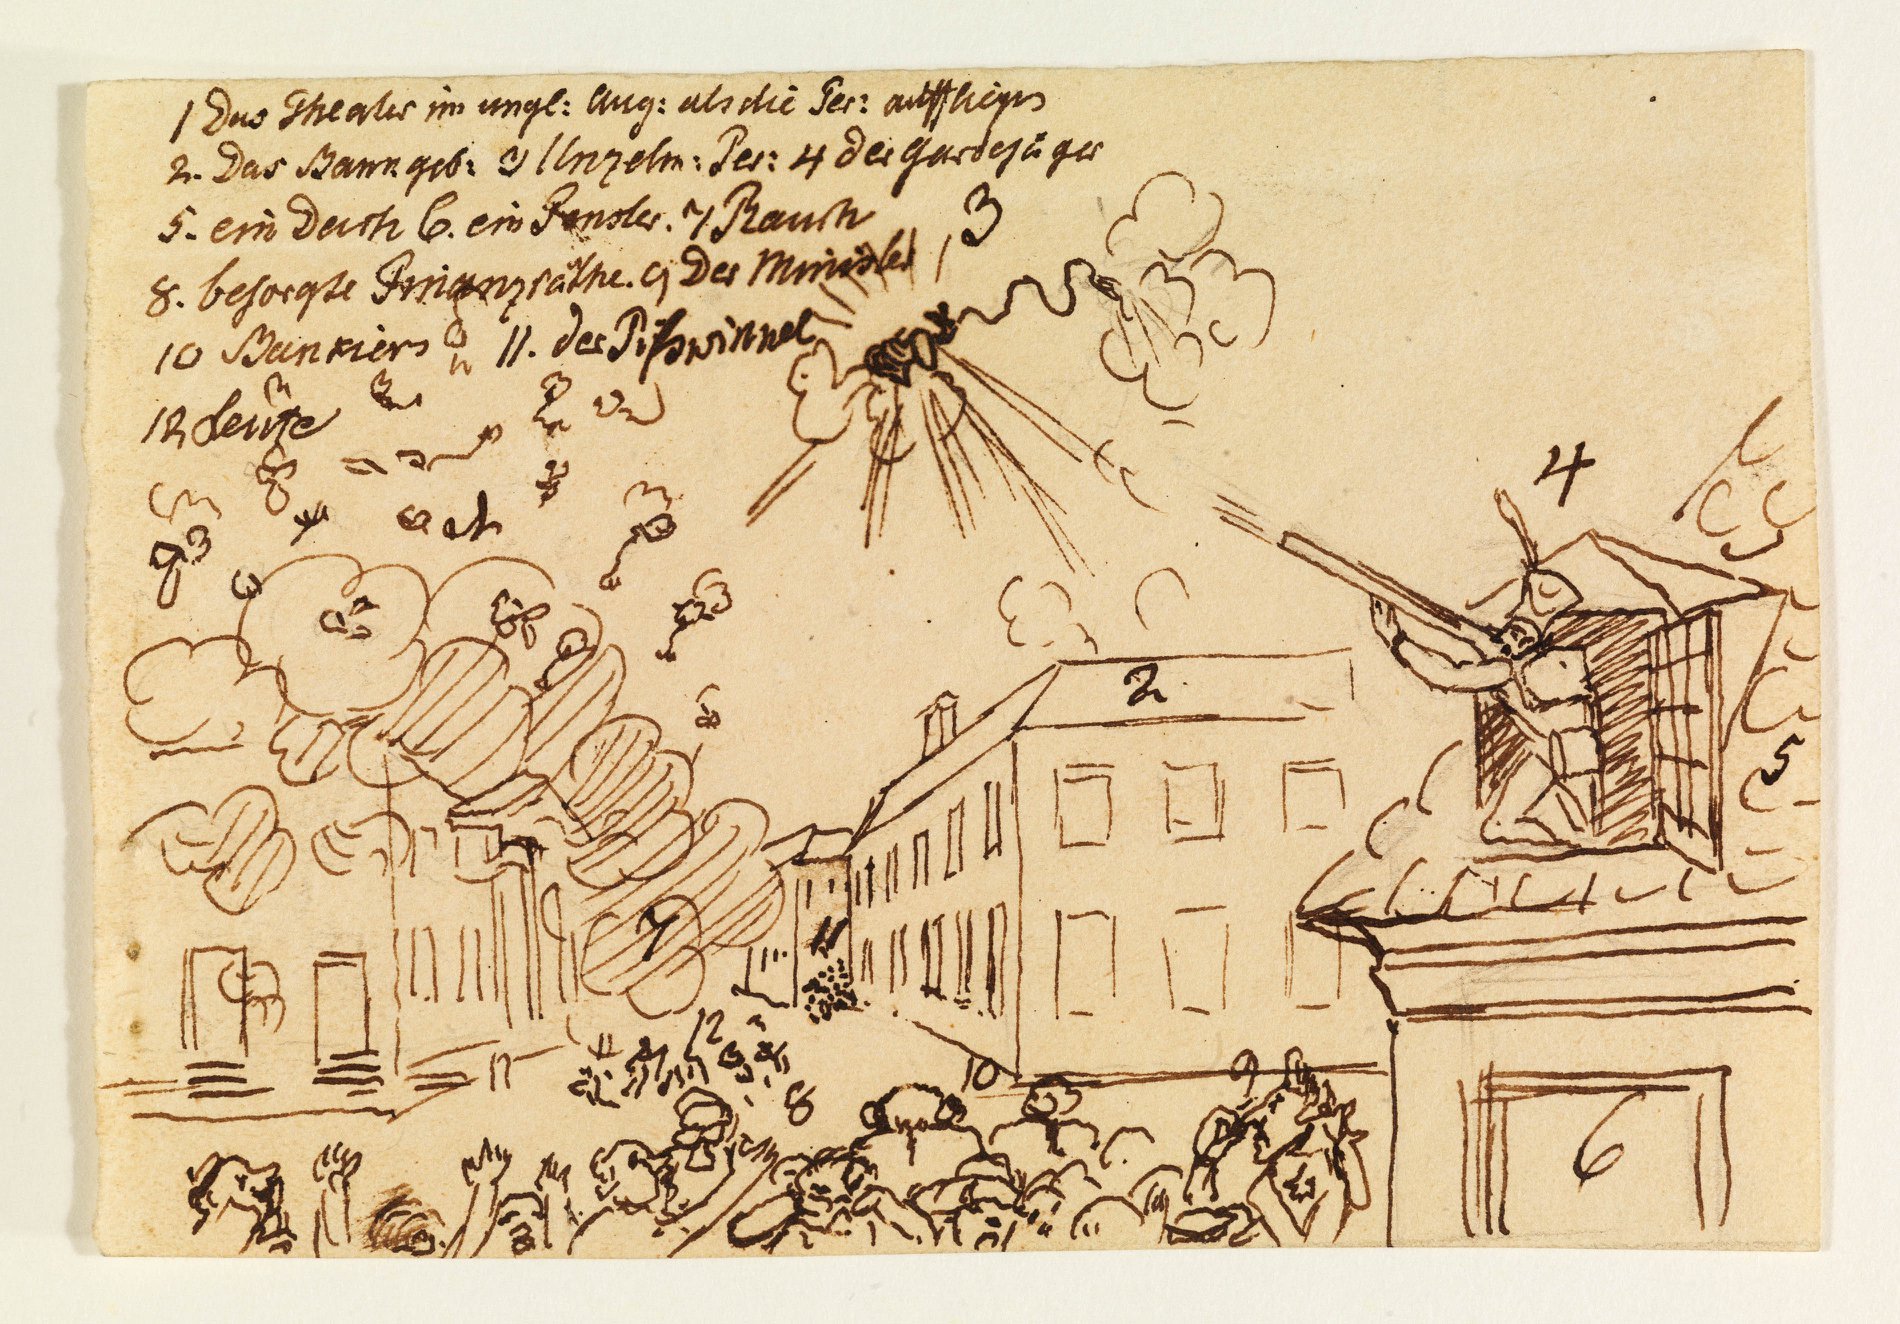 1 Das Theater im ungl: Aug: als die Per:
2. Das Bank geb: 3 Unzelm: Per: 4 der Gardejäger
5. ein Dach 6. ein Fenster. 7 Rauch
8. besorgte Finanzräthe. 9 Der Minister
10 Bankiers 11. der Pißwinkel
12 Leute
3
4
2
5
7
11
12
10
9
8
6